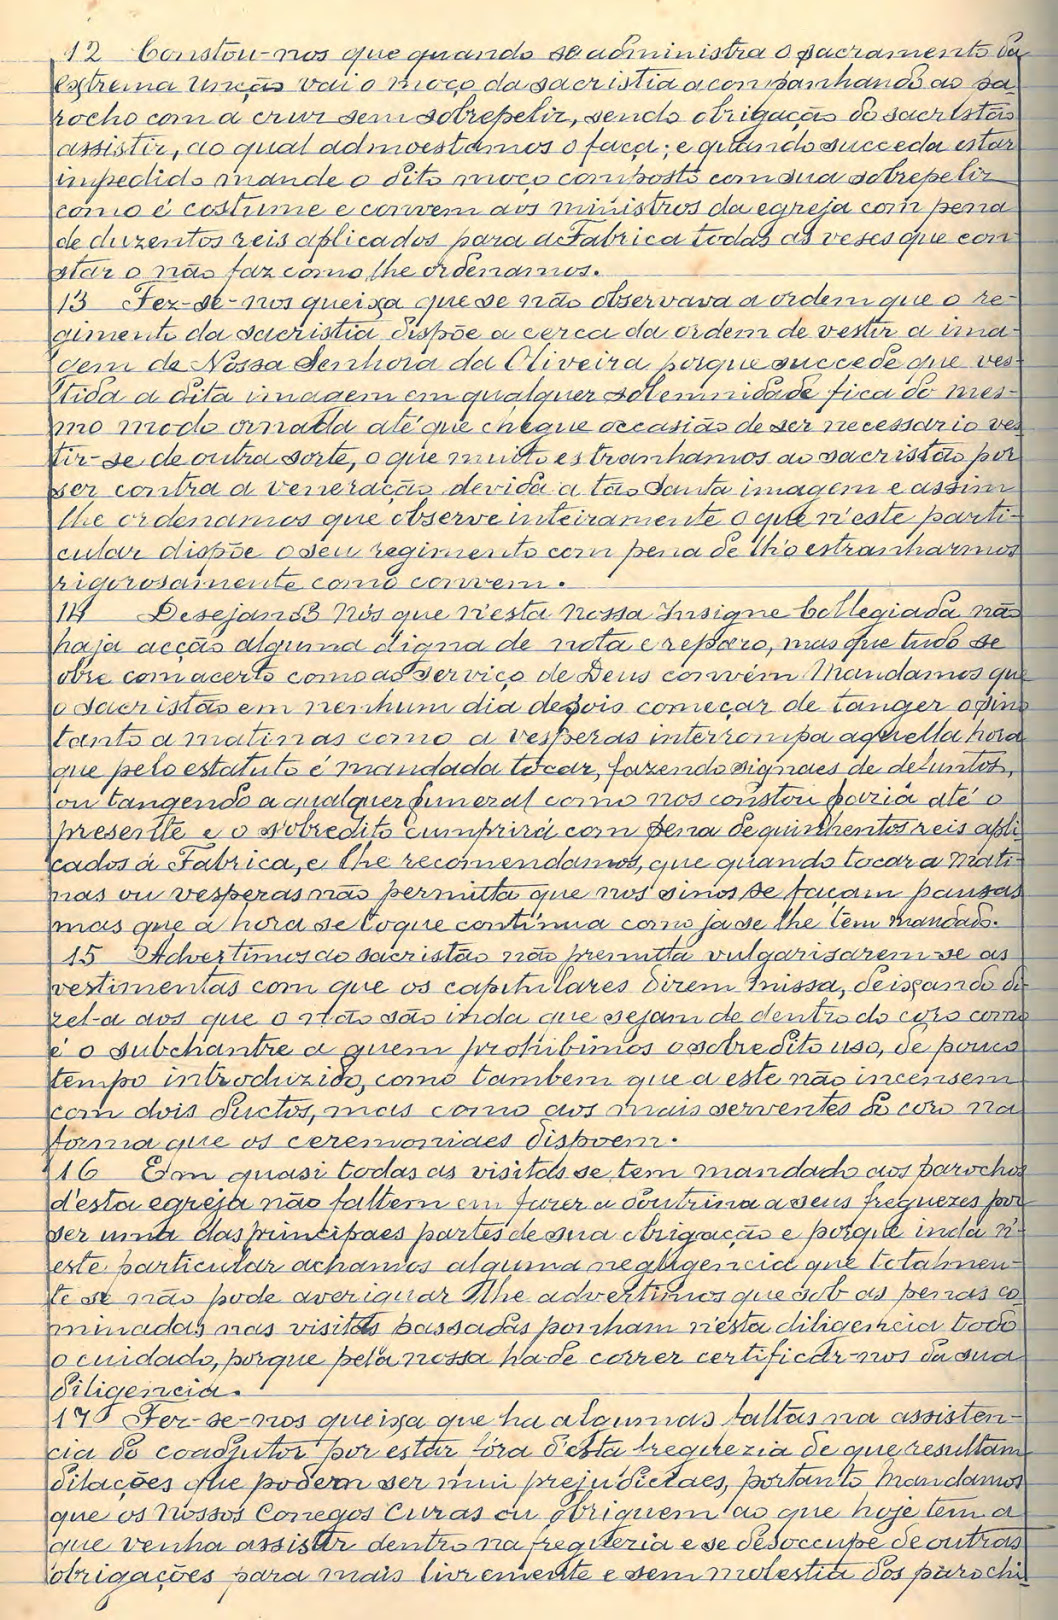 12 Constou-nos que quando se administra o sacramento da
extrema Uncção vai o moço da sacristia acompanhando ao pa-
rocho com a cruz sem sobrepeliz, sendo obrigação do sacristão
assistir, ao qual admoestamos o faça; e quando succeda estar
impedido mande o dito moço composto com sua sobrepeliz
como é costume e convem aos ministros da egreja com pena
de duzentos reis aplicados para a Fabrica todas as veses que con-
star o não faz como lhe ordenamos.
13 Fez-se-nos queixa que se não observava a ordem que o re-
gimento da sacristia dispõe a cerca da ordem de vestir a ima-
gem de Nossa Senhora da Oliveira porque succede que ves-
tida a dita imagem em qualquer solemnidade fica do mes-
mo modo ornada até que chegue occasião de ser necessario ves-
tir-se de outra sorte, o que muito estranhamos ao sacristão por
ser contra a veneração devida a tão Santa imagem e assim
lhe ordenamos que observe inteiramente o que n'este parti-
cular dispõe o seu regimento com pena de lh'o estranharmos
rigorosamente como convem.
14 Desejamos nós que n'esta nossa Insigne Collegiada não
haja acção alguma digna de nota e reparo, mas que tudo se
obre com acerto como ao serviço de Deus convém Mandamos que
o sacristão em nenhum dia depois começar de tanger o sino
tanto a matinas como a vesperas interrompa aquella hora
que pelo estatuto é mandada tocar, fazendo signaes de defuntos,
ou tangendo a qualquer funeral como nos constou fazia até o
presente e o sobredito cumprirá com pena de quinhentos reis apli-
cados á Fabrica, e lhe recomendamos, que quando tocar a Mati-
nas ou vesperas não permitta que nos sinos se façam pausas
mas que a hora se toque continua como ja se lhe tem mandado.
15 Advertimos ao sacristão não premitta vulgarisarem-se as
vestimentas com que os capitulares dizem missa, deixando di-
zel-a aos que o não são inda que sejam de dentro do coro como
é o subchantre a quem prohibimos o sobredito uso, de pouco
tempo introduzido, como tambem que a este não incensem
com dois ductos, mas como aos mais serventes do coro na
forma que os ceremoniaes dispoem.
16 Em quasi todas as visitas se tem mandado aos parochos
d'esta egreja não faltem em fazer a doutrina a seus freguezes por
ser uma das principaes partes de sua obrigação e porque inda n'-
este particular achamos alguma negligencia que totalmen-
te se não pode averiguar lhe advertimos que sob as penas co-
minadas nas visitas passadas ponham n'esta diligencia todo
o cuidado, porque pela nossa ha-de correr certificar-nos da sua
diligencia.
17 Fez-se-nos queixa que ha algumas faltas na assisten-
cia do coadjutor por estar fóra d'esta freguezia de que resultam
dilações que podem ser mui prejudiciaes, portanto Mandamos
que os nossos Conegos Curas ou obriguem ao que hoje tem a
que venha assistir dentro na freguezia e se desoccupe de outras
obrigações para mais livremente e sem molestia dos parochi-